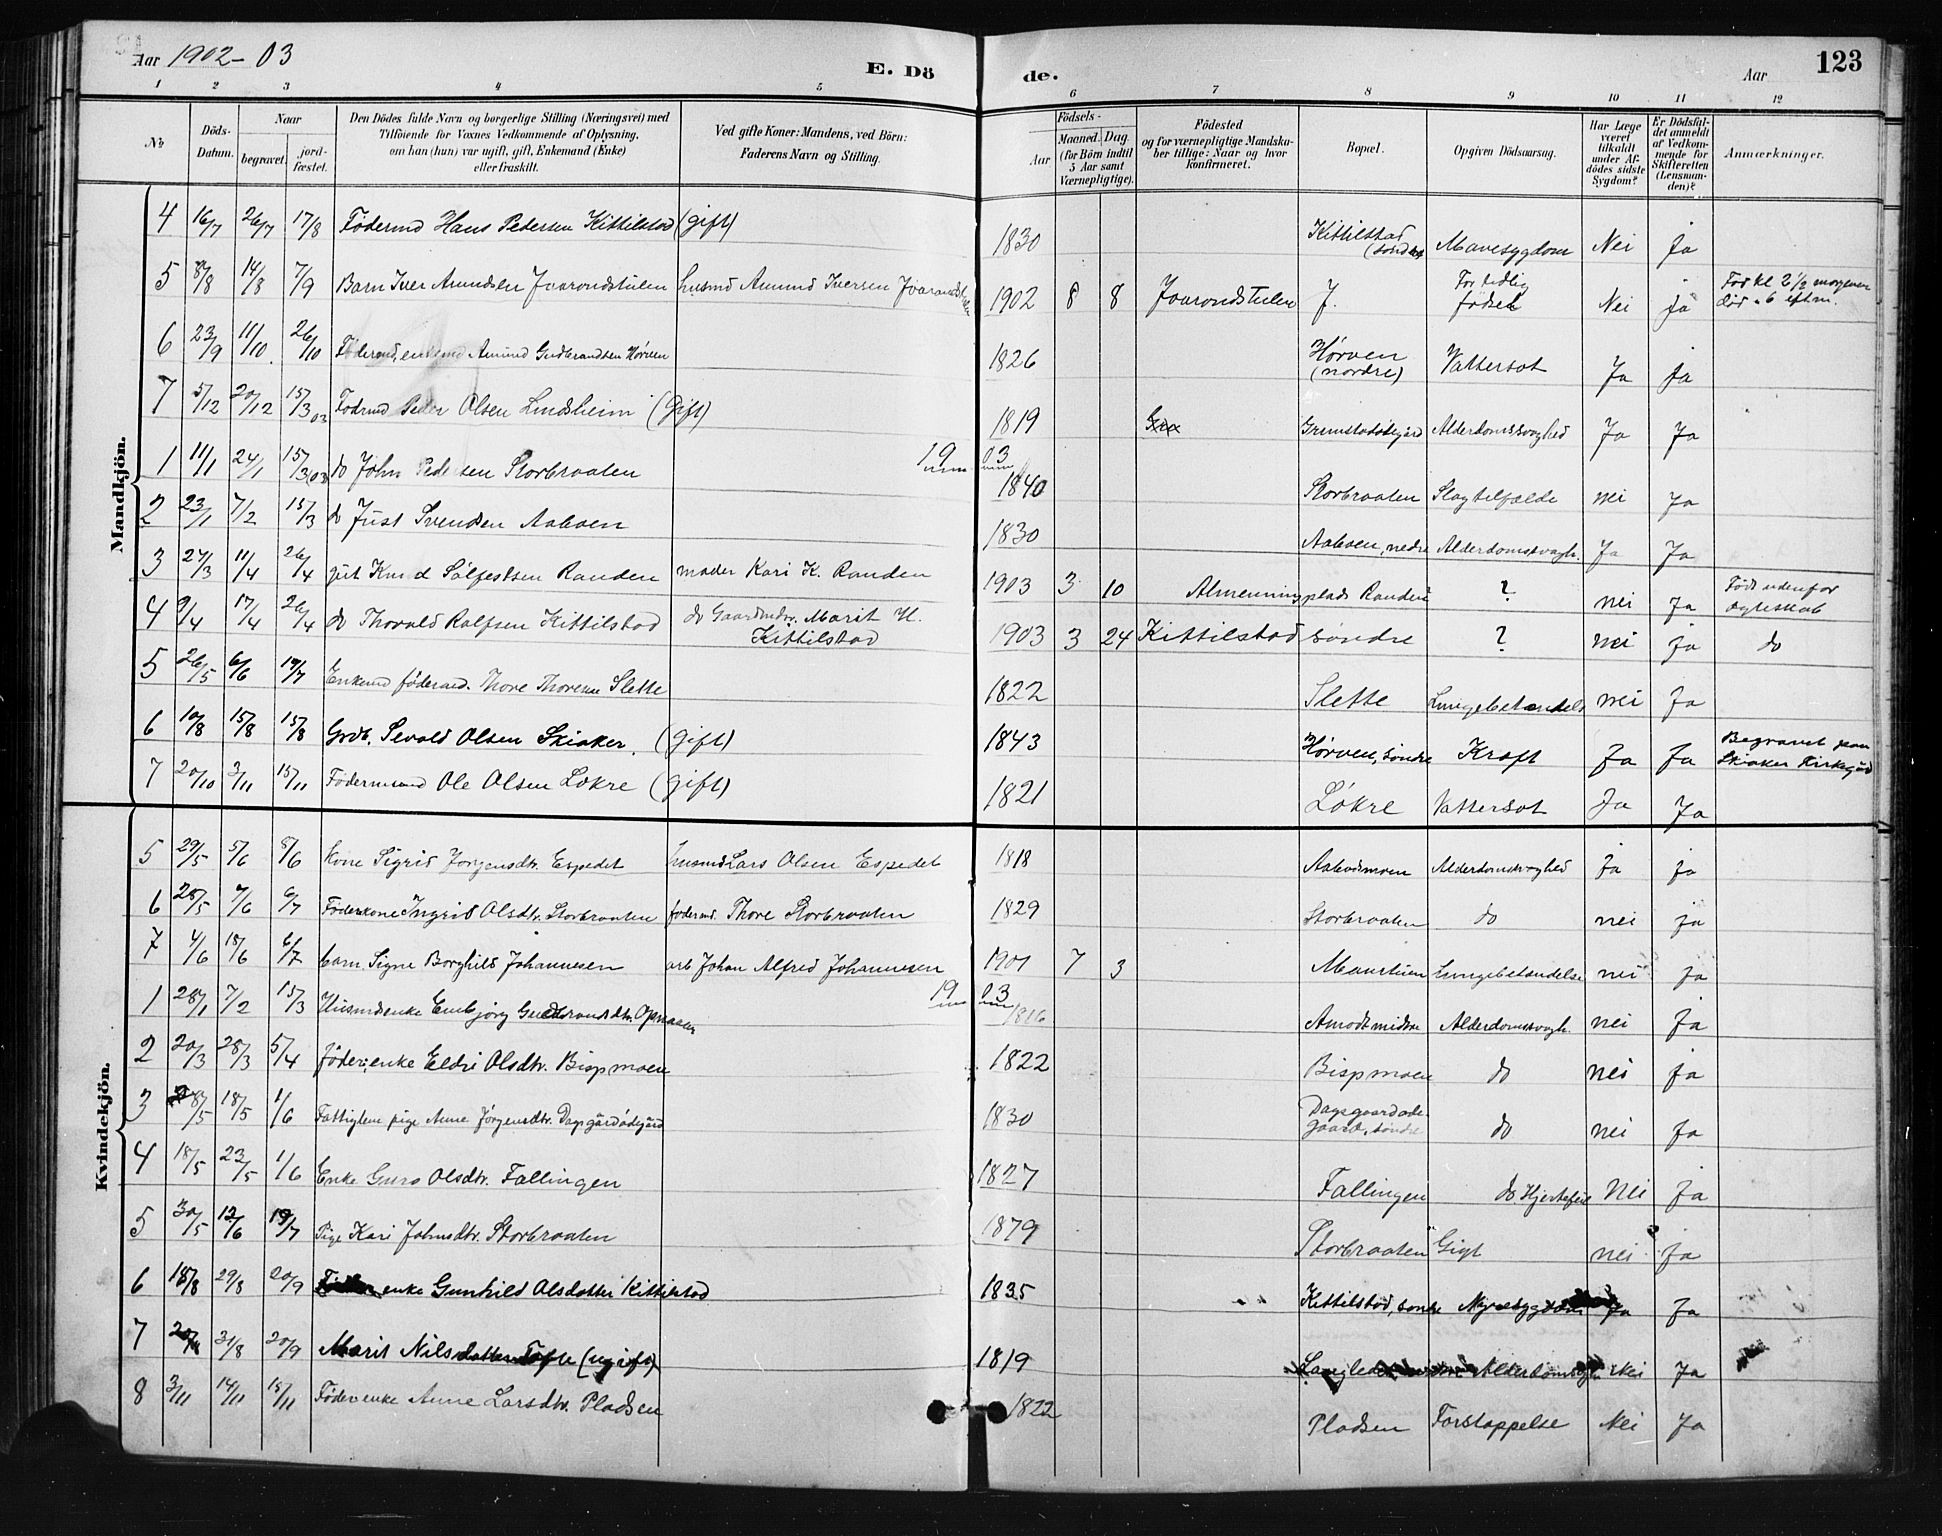 Aar 1902-03
E. Dö
de.
Aar
123
1 2 3 4 5 6 7 8 9 10 11 12
No
Döds-Datum.
Naar
begravet.
jord-fæstet.
Den Dödes fulde Navn og borgerlige Stilling (Næringsvei) med
Tilföiende for Voxnes Vedkommende af Oplysning,
om han (hun) var ugift, gift, Enkemand (Enke)
eller fraskilt.
Ved gifte Koner: Mandens, ved Börn:
Faderens Navn og Stilling.
Födsels-
Aar
Maaned. Dag
(for Börn indtil
5 Aar samt
Værnepligtige).
Födested
og for værnepligtige Mandska-
ber tillige: Naar og hvor
konfirmeret.
Bopæl.
Opgiven Dödsaarsag.
Har Læge
været
tilkaldt
under Af-
dödes sidste
Sygdom?
Er Dödsfal-
det anmeldt
af Vedkom-
mende for
Skifteretten
(Lensman-
den)?
Anmærkninger.
Mandkjön.
4 16/7 26/7 17/8 Födermd Hans Pedersen Kittilstad (gift) 1830 Kittilstad (söndre) Mavesygdom Nei Ja
5 8/8 14/8 7/9 Barn Iver Amundsen Jvarondstulen husmd Amund Iversen 1902 8 8 Jvarondstulen J. For tidlig födsel Nei Ja Fød kl 2 1/2 morgenen død " 6 eftm.
6 23/9 11/10 26/10 Föderaad, enkemd Amund Gudbrandsen Hörven 1826 Hörven (nordre) Vattersot Ja Ja
7 5/12 20/12 15/3 03 Födermd Peder Olsen Lindsheim (Gift) 1819 Alderdomssvaghed Ja Ja
1903
1 11/1 24/1 15/3 03 do John Pedersen Storbraaten 1840 Storbraaten Slagtilfælde nei Ja
2 23/1 7/2 15/3 do Just Svendsen Aaboen 1830 Aaboen, nedre Alderdomssvagh. Ja Ja
3 27/3 11/4 26/4 gut Knud Sölfestsen Randen moder Kari K. Randen 1903 3 10 Almenningplads Randen ? nei Ja Födt udenfor ægteskab
4 9/4 17/4 26/4 do Thorvald Rolfsen Kittilstad do Gaardmdtr. Marit H. Kittilstad 1903 3 24 Kittilstad söndre ? nei Ja do
5 26/5 6/6 19/7 Enkemd föderaad. Thore Thoresen Slette 1822 Slette Lungebetændelse nei Ja
6 10/8 15/8 15/8 Grdb. Sevald Olsen Skiaker. (gift) 1843 Hörven, söndre Kræft Ja Ja Begravet paa Skiaker Kirkegård
7 20/10 3/11 15/11 Födermand Ole Olsen Lökre (gift) 1821 Lökre Vattersot Ja Ja
Kvindekjön.
5 29/5 5/6 8/6 Kone Sigrid Jorgensdtr. Espedet husmd Lars Olsen Espedet 1818 Alderdomssvaghed ja ja
6 28/5 7/6 6/7 Föderkone Ingrid Olsdtr. Storbraaten föderaad. Thore Storbraaten 1829 Storbraaten do nei ja
7 4/6 18/6 6/7 barn Signe Borghild Johannesen arb Johan Alfred Johannesen 1901 7 3 Lungebetændelse nei ja
1903
1 28/1 7/2 15/3 Husmdsenke Embjörg Gudbrandsdtr. 1816 Amodt midtre Alderdomssvagh. nei ja
2 20/3 28/3 5/4 föder, enke Eldri Olsdtr. Bispmoen 1822 Bispmoen do nei ja
3 8/5 18/5 1/6 Fattiglem pige Anne Jörgensdtr. Dagsgårdödegård 1830 Dagsgaardöde- gaard, söndre do nei ja
4 18/5 23/5 1/6 Enke Guro Olsdtr. Fallingen 1827 Fallingen do. Hjertefeil Nei ja
5 30/5 12/6 19/7 Pige Kari Johnsdtr. Storbraaten 1879 Storbraaten Gigt nei ja
6 18/8 29/8 20/9 enke Gunhild Olsdatter Kittilstad 1835 Kittilstad, söndre Nyresygdom Ja Ja
7 31/8 20/9 Marit Nilsdatter Tofte (ugift) 1819 Alderdomssvagh Nei Ja
8 3/11 14/11 15/11 Föder. enke Anne Larsdtr. Pladsen 1822 Pladsen Forstoppelse Nei Ja